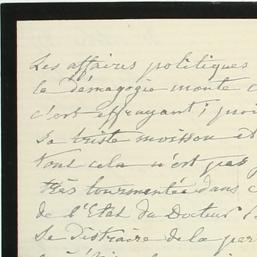 Les affaires politiques
la Démagogie monte
c'est effrayant;
sa triste moisson et
tout cela n'est pas
très tourmentée dans
de l'Etat du Docteur
se distraire de la per